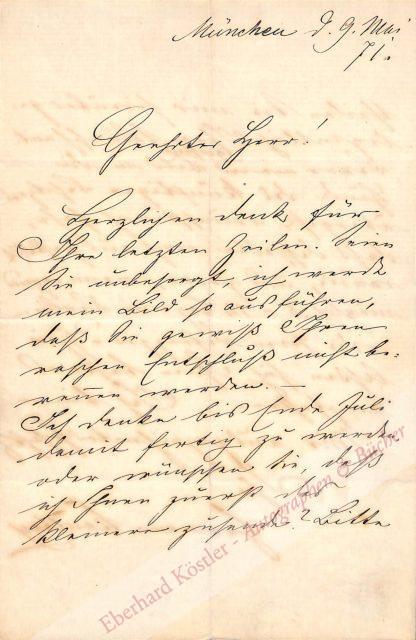 München d. 9. Mai
71.
Geehrter Herr!
Herzlichen Dank für
Ihre letzten Zeilen. Seien
Sie unbesorgt, ich werde
mein Bild so ausführen,
daß Sie gewiß Ihren
raschen Entschluß nicht be-
reuen werden. —
Ich denke bis Ende Juli
damit fertig zu werden
oder wünschen Sie, daß
ich Ihnen zuerst das
kleinere zusende? Bitte
Eberhard Köstler - Autographen & Bücher